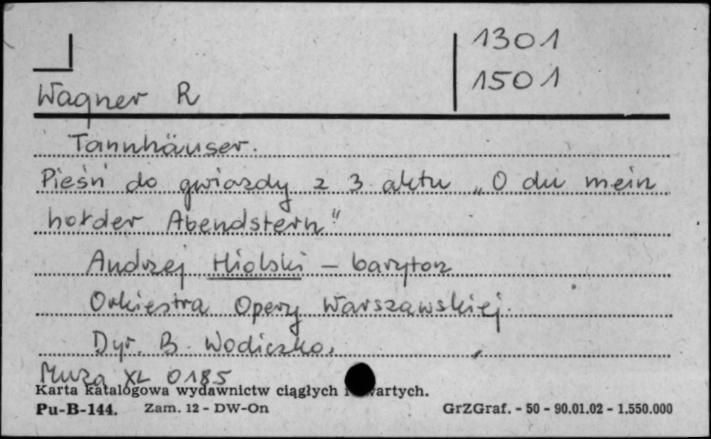 1301
1501
Wagner R
Tannhäuser.
Pieśń do gwiazdy z 3 aktu „O du mein
holder Abendstern"
Andrzej Hiolski – baryton
Orkiestra Opery Warszawskiej.
Dyr. B. Wodiczko.
Muza XL 0185
Karta katalogowa wydawnictw ciągłych i zwartych.
Pu-B-144. Zam. 12 - DW-On GrZGraf. - 50 - 90.01.02 - 1.550.000